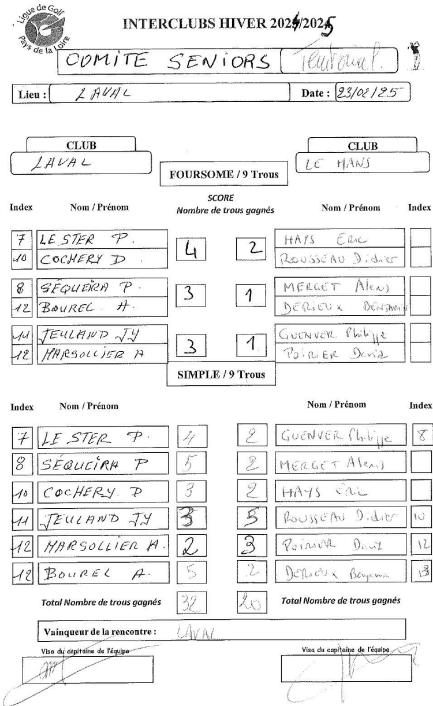 Ligue de Golf
Pays de la Loire
INTERCLUBS HIVER 2024/2025
COMITE SENIORS
Lieu : LAVAL Date : 23/02/25
CLUB CLUB
LAVAL LE MANS
FOURSOME / 9 Trous
SCORE
Index Nom / Prénom Nombre de trous gagnés Nom / Prénom Index
7 LE STER P. 4 2 HAYS Éric
10 COCHERY D ROUSSEAU Didier
8 SÉQUEIRA P. 3 1 MERGET Alexis
12 BOUREL A. DERIEUX BENJAMIN
11 JEULAND JY 3 1 GUENVER Philippe
12 MARSOLLIER A POIRIER David
SIMPLE / 9 Trous
Index Nom / Prénom Nom / Prénom Index
7 LE STER P. 4 2 GUENVER Philippe 8
8 SÉQUEIRA P 5 2 MERGET Alexis
10 COCHERY D 3 2 HAYS Éric
11 JEULAND JY 3 5 ROUSSEAU Didier 10
12 MARSOLLIER A. 2 3 POIRIER David 12
12 BOUREL A. 5 2 DERIEUX Benjamin 13
Total Nombre de trous gagnés 32 20 Total Nombre de trous gagnés
Vainqueur de la rencontre : LAVAL
Visa du capitaine de l'équipe Visa du capitaine de l'équipe